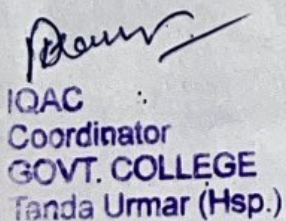 IQAC :
Coordinator
GOVT. COLLEGE
Tanda Urmar (Hsp.)